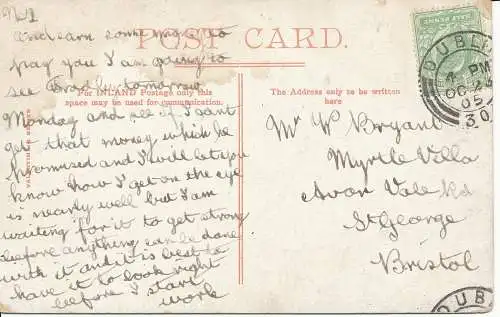 No 1
and earn some money to
pay you I am going to
see Bradley tomorrow
Monday and see if I cant
get that money which he
promised and I will let you
know how I get on the eye
is nearly well but I am
waiting for it to get strong
before anything can be done
with it and it is best to
have it to look right
before I start
work
POST CARD.
For INLAND Postage only this
space may be used for communication.
The Address only to be written
here
VALENTINES SERIES
Mr W Bryant
Myrtle Villa
Avon Vale Rd
St George
Bristol
HALF PENNY
DUBLIN
4 PM
OC 22
05
30
DUB